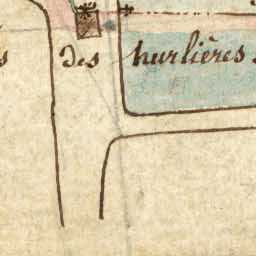 des hurlières